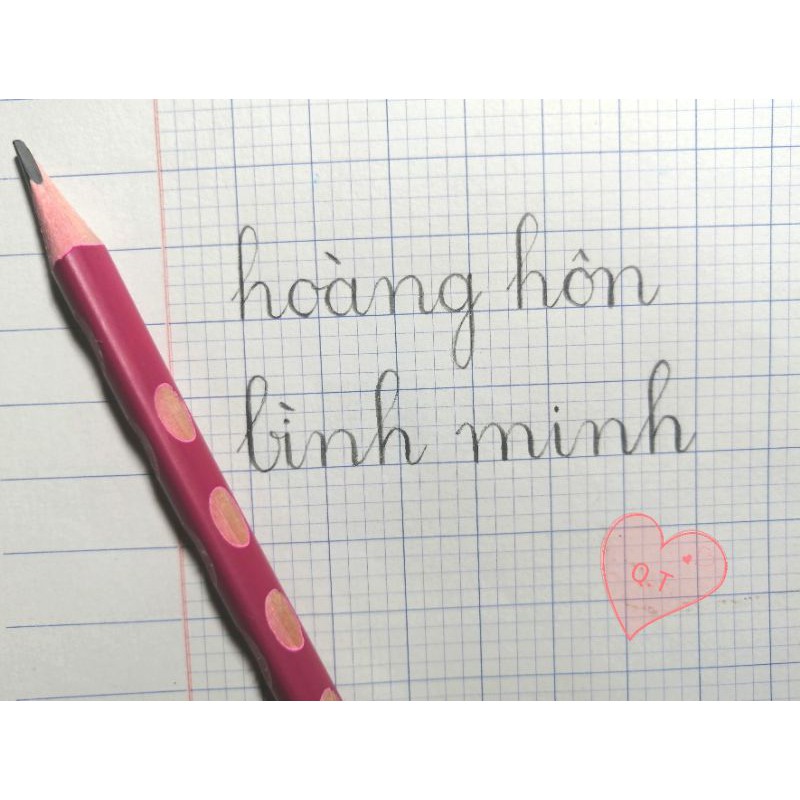 hoàng hôn
bình minh
Q.T